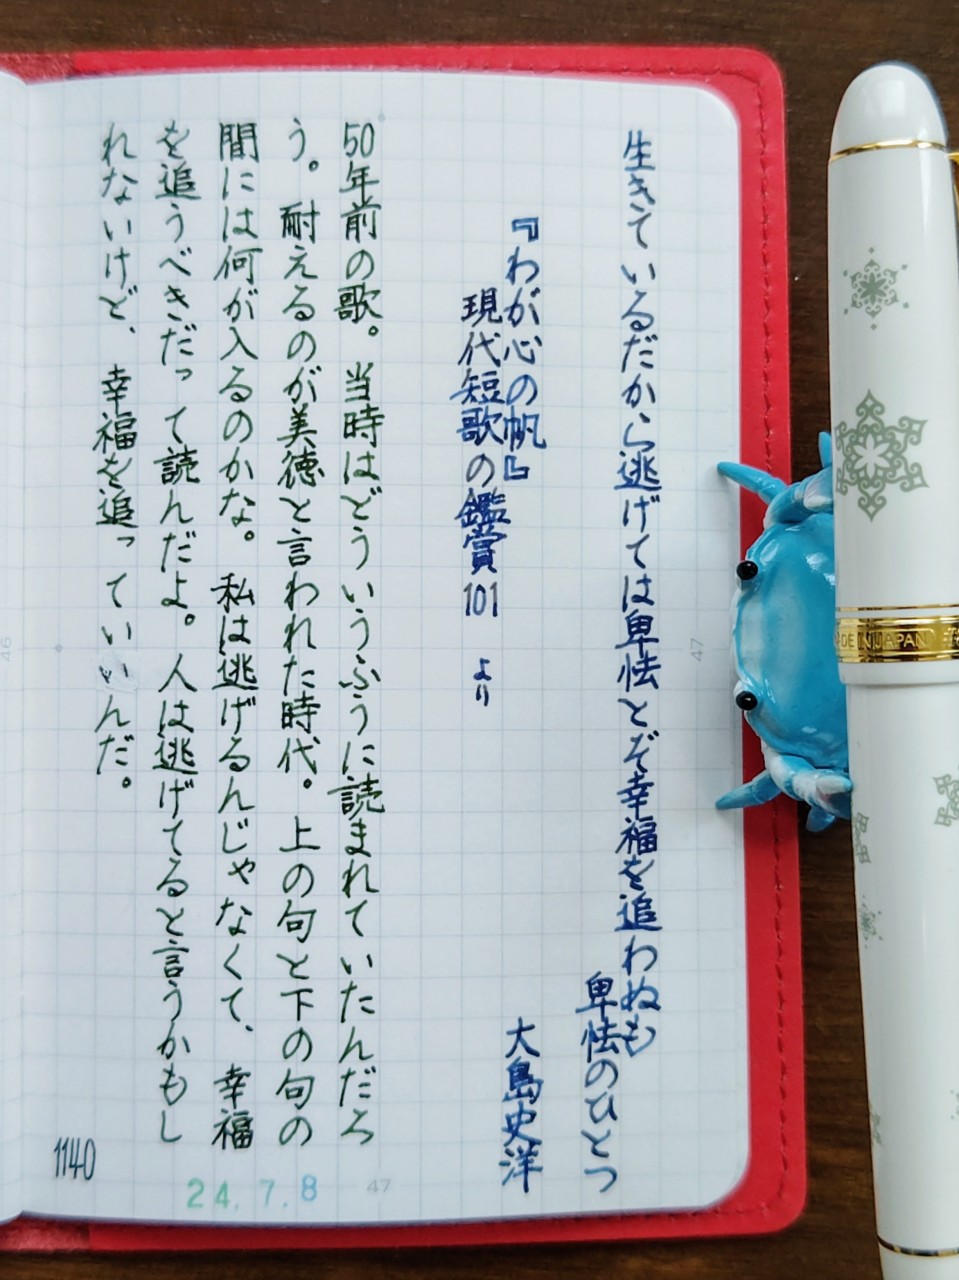 生きているだから逃げては卑怯とぞ幸福を追わぬも
卑怯のひとつ
大島史洋
『わが心の帆』
現代短歌の鑑賞101 より
50年前の歌。当時はどういうふうに読まれていたんだろ
う。耐えるのが美徳と言われた時代。上の句と下の句の
間には何が入るのかな。私は逃げるんじゃなくて、幸福
を追うべきだって読んだよ。人は逃げてると言うかもし
れないけど、幸福を追っていいんだ。
1140
24.7.8
47
47
46
JAPAN